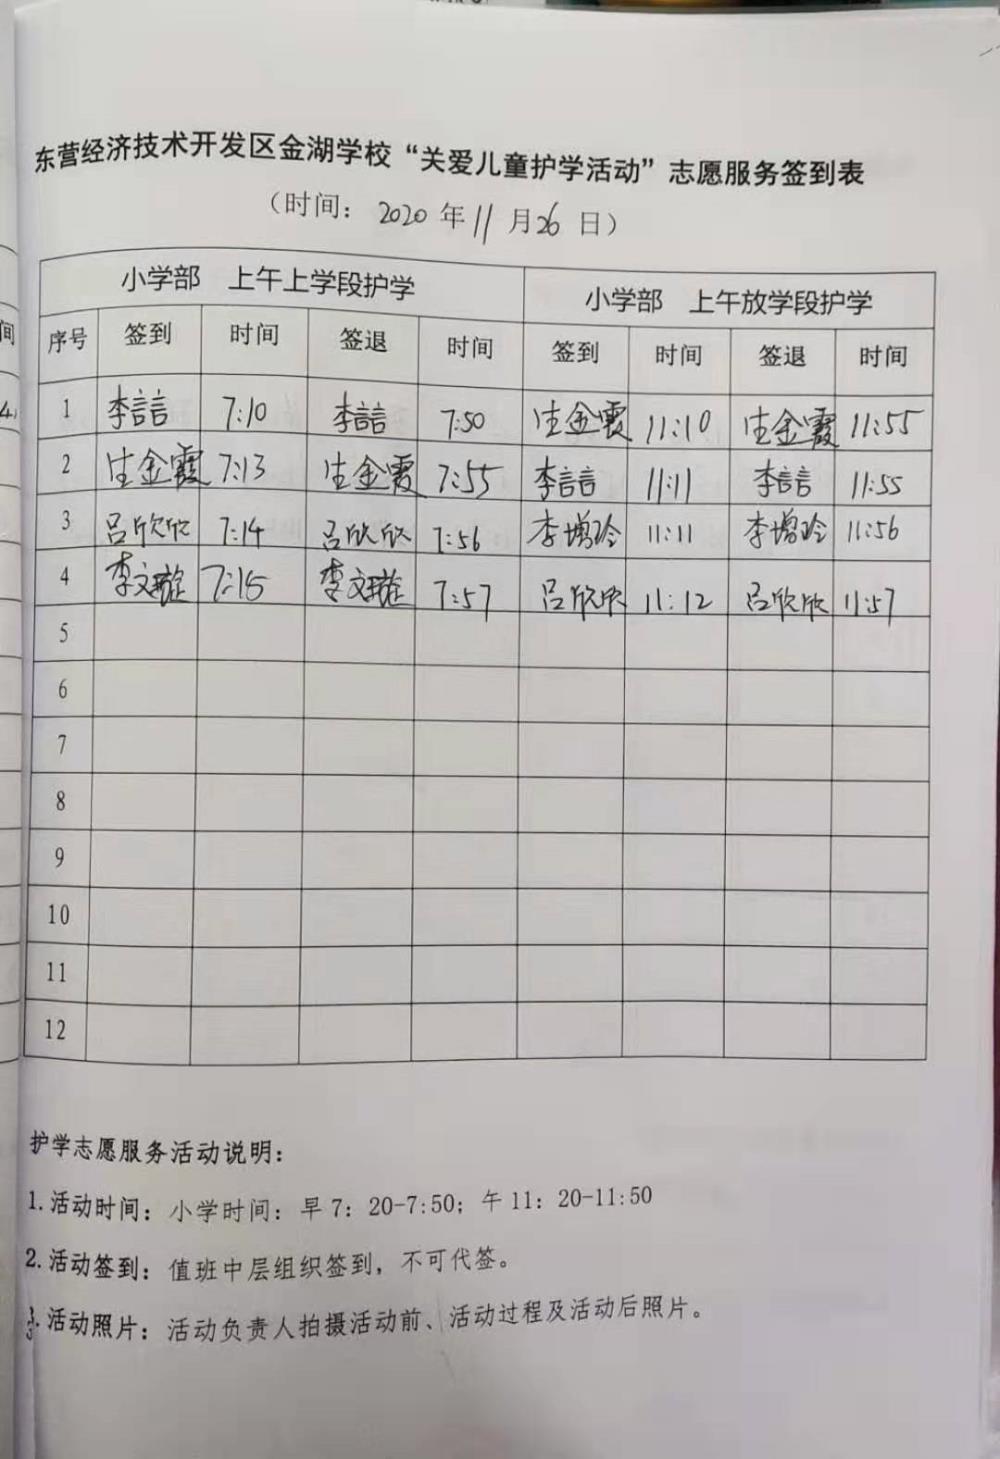 东营经济技术开发区金湖学校“关爱儿童护学活动”志愿服务签到表
（时间：2020年11月26日）
小学部 上午上学段护学 小学部 上午放学段护学
序号 签到 时间 签退 时间 签到 时间 签退 时间
1 李言言 7:10 李言言 7:50 生金霞 11:10 生金霞 11:55
2 生金霞 7:13 生金霞 7:55 李言言 11:11 李言言 11:55
3 吕欣欣 7:14 吕欣欣 7:56 李增玲 11:11 李增玲 11:56
4 李文璇 7:15 李文璇 7:57 吕欣欣 11:12 吕欣欣 11:57
5
6
7
8
9
10
11
12
护学志愿服务活动说明：
1.活动时间：小学时间：早7：20-7:50；午11：20-11:50
2.活动签到：值班中层组织签到，不可代签。
3.活动照片：活动负责人拍摄活动前、活动过程及活动后照片。